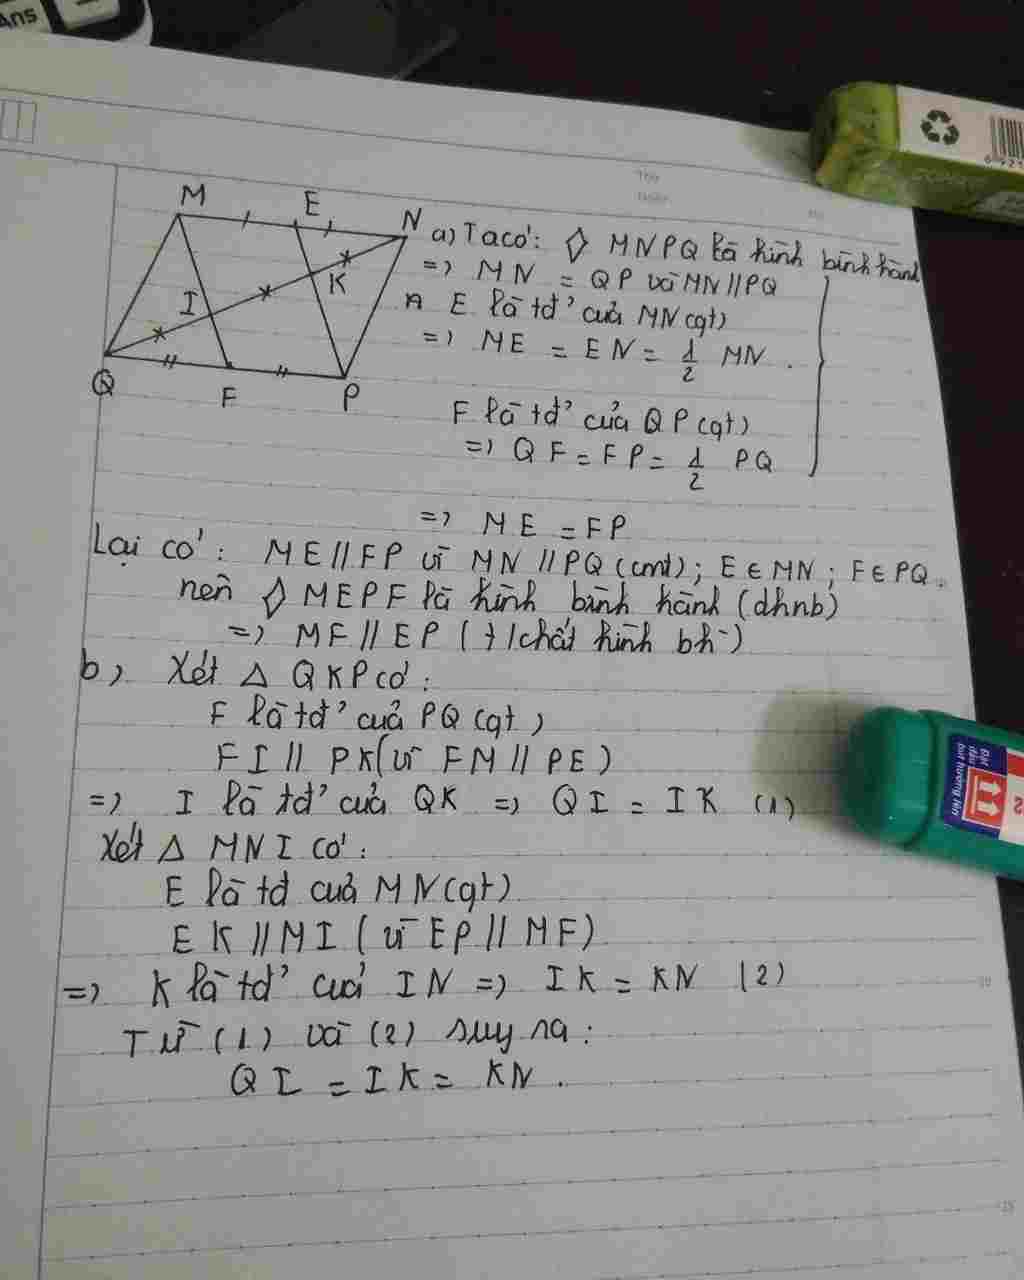 Ans
M E N
I K
Q F P
a) Ta có: ◊ MNPQ là hình bình hành
=> MN = QP và MN // PQ
E là tđ' của MN (gt)
=> ME = EN = 1/2 MN.
F là tđ' của QP (gt)
=> QF = FP = 1/2 PQ
=> ME = FP
Lại có: ME // FP vì MN // PQ (cmt); E ∈ MN; F ∈ PQ.
nên ◊ MEPF là hình bình hành (dhnb)
=> MF // EP (t/chất hình bh)
b) Xét Δ QKP có:
F là tđ' của PQ (gt)
FI // PK (vì FM // PE)
=> I là tđ' của QK => QI = IK (1)
Xét Δ MNI có:
E là tđ của MN (gt)
EK // MI (vì EP // MF)
=> K là tđ' của IN => IK = KN (2)
Từ (1) và (2) suy ra:
QI = IK = KN.